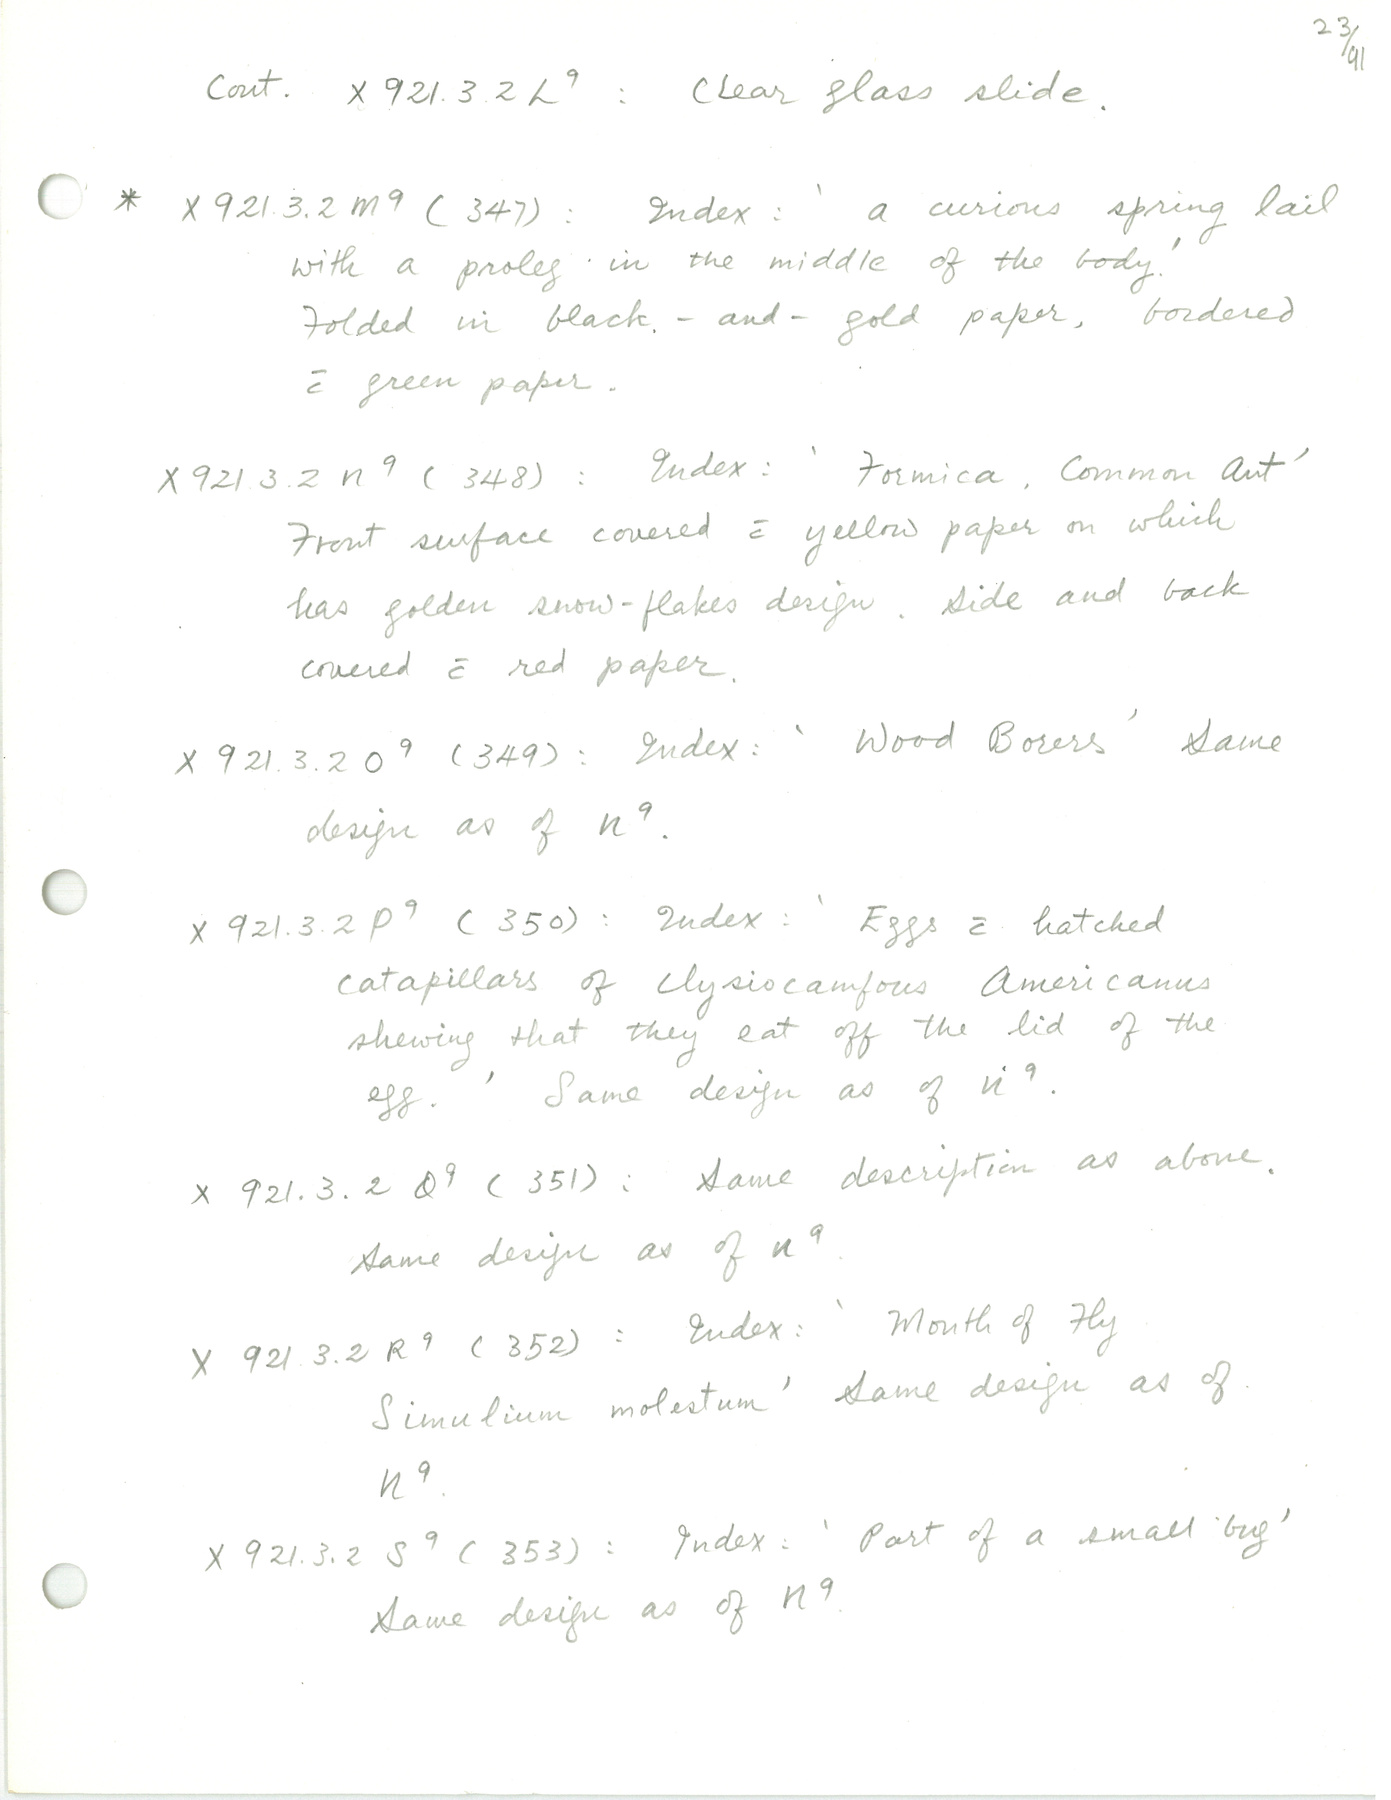 23/91
Cont. X921.3.2L⁹ : Clear glass slide.
* X921.3.2M⁹ (347) : Index : ' a curious spring tail
with a proleg in the middle of the body.'
Folded in black - and - gold paper, bordered
c̄ green paper.
X921.3.2N⁹ (348) : Index : ' Formica, Common Ant '
Front surface covered c̄ yellow paper on which
has golden snow-flakes design. Side and back
covered c̄ red paper.
X921.3.2O⁹ (349) : Index : ' Wood Borers ' Same
design as of N⁹.
X921.3.2P⁹ (350) : Index : ' Eggs c̄ hatched
catapillars of Clysiocampous Americanus
shewing that they eat off the lid of the
egg. ' Same design as of N⁹.
X921.3.2Q⁹ (351) : Same description as above.
Same design as of N⁹.
X921.3.2R⁹ (352) : Index : ' Mouth of Fly
Simulium molestum ' Same design as of
N⁹.
X921.3.2S⁹ (353) : Index : ' Part of a small bug '
Same design as of N⁹.